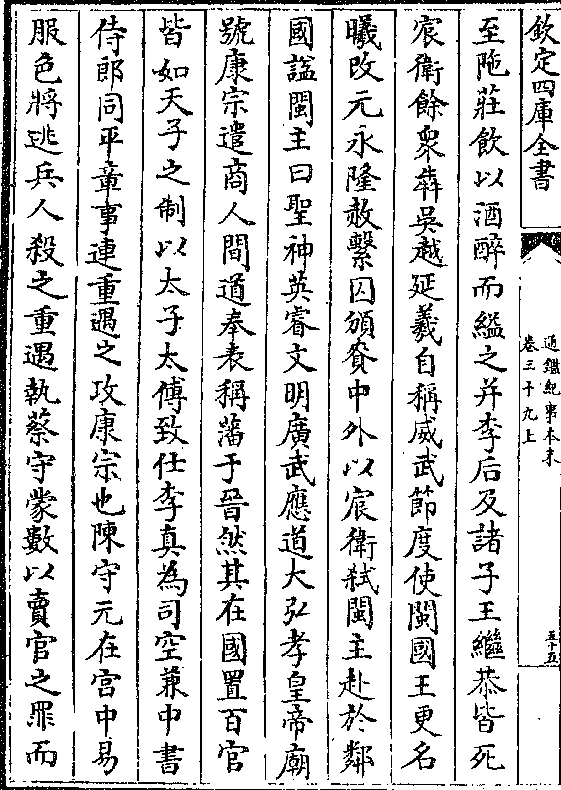 欽定四庫全書
通鑑紀事本末
卷三十九上
五十五
至陁莊飲以酒醉而縊之并李后及諸子王繼恭皆死
宸衛餘衆犇吳越延羲自稱威武節度使閩國王更名
曦改元永隆赦繫囚頒賚中外以宸衛弑閩主赴於鄰
國諡閩主曰聖神英睿文明廣武應道大弘孝皇帝廟
號康宗遣商人間道奉表稱藩于晉然其在國置百官
皆如天子之制以太子太傅致仕李真為司空兼中書
侍郎同平章事連重遇之攻康宗也陳守元在宮中易
服色將逃兵人殺之重遇執蔡守蒙數以賣官之罪而